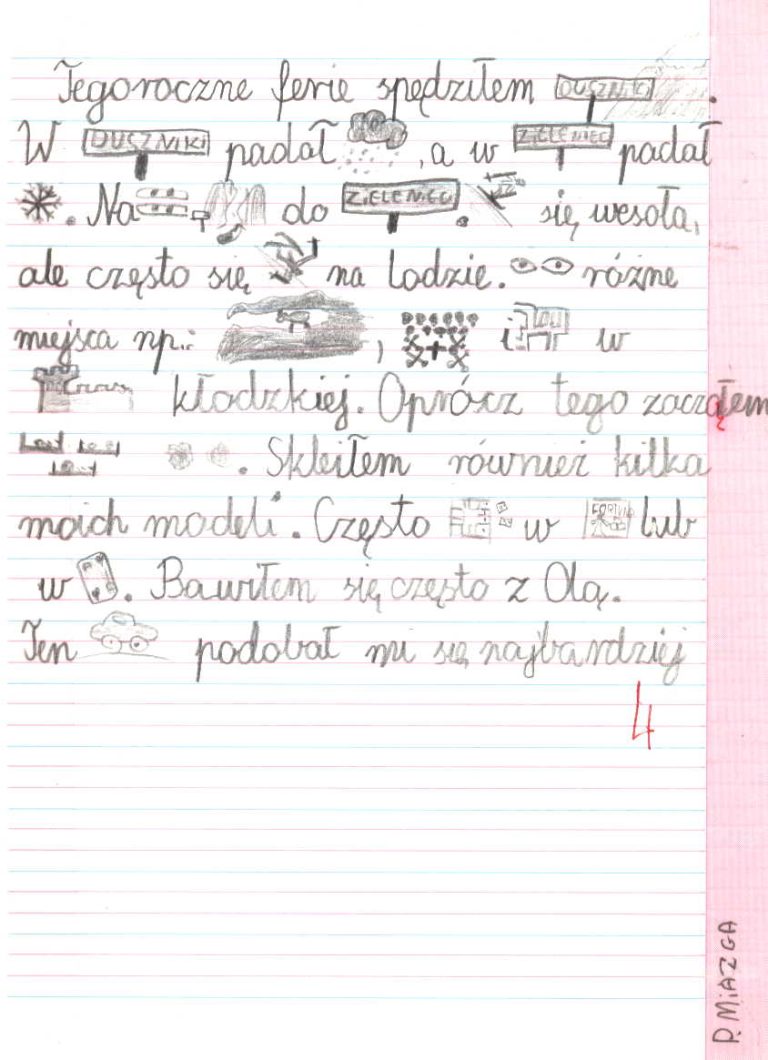 Tegoroczne ferie spędziłem DUSZNIKI .
W DUSZNIKI padał , a w ZIELENIEC padał
. Na do ZIELENIEC . się wesoła,
ale często się na lodzie. różne
miejsca np.: , i w
kłodzkiej. Oprócz tego zacząłem
. Skleiłem również kilka
moich modeli. Często w lub
w . Bawiłem się często z Olą.
Ten podobał mi się najbardziej
4
P. MIAZGA